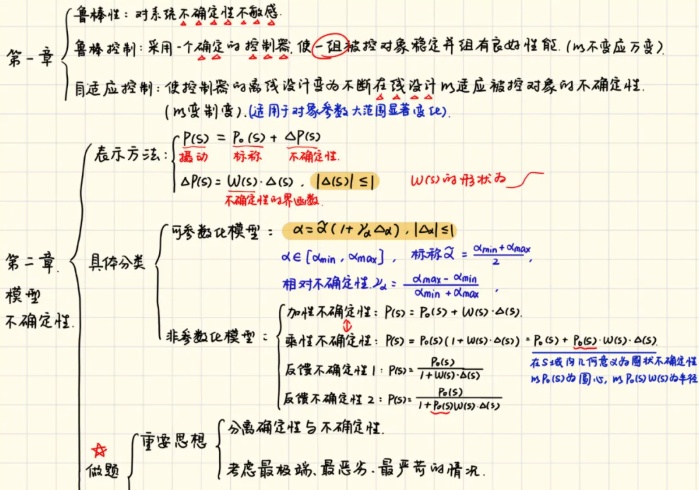 第一章
鲁棒性：对系统不确定性不敏感.
鲁棒控制：采用一个确定的控制器，使一组被控对象稳定并组有良好性能.(以不变应万变).
自适应控制：使控制器的离线设计变为不断在线设计以适应被控对象的不确定性.
(以变制变).(适用于对象参数大范围显著变化).
第二章.
模型
不确定性.
表示方法：
P(s) = P₀(s) + ΔP(s)
摄动 标称 不确定性.
ΔP(s) = W(s)·Δ(s)， |Δ(s)| ≤ 1 W(s)的形状为
不确定性的界函数.
具体分类
可参数化模型： α = α̃(1+γαΔα)，|Δα| ≤ 1
α∈[αmin，αmax]， 标称α̃ = (αmin+αmax)/2，
相对不确定性γα = (αmax-αmin)/(αmin+αmax)，
非参数化模型：
加性不确定性：P(s) = P₀(s) + W(s)·Δ(s).
乘性不确定性：P(s) = P₀(s)(1+W(s)·Δ(s)) = P₀(s) + P₀(s)·W(s)·Δ(s)
在S域内几何意义为圆状不确定性
以P₀(s)为圆心，以P₀(s)W(s)为半径
反馈不确定性1：P(s) = P₀(s)/(1+W(s)·Δ(s))
反馈不确定性2：P(s) = P₀(s)/(1+P₀(s)W(s)·Δ(s))
做题
重要思想
分离确定性与不确定性.
考虑最极端、最恶劣、最严苛的情况.